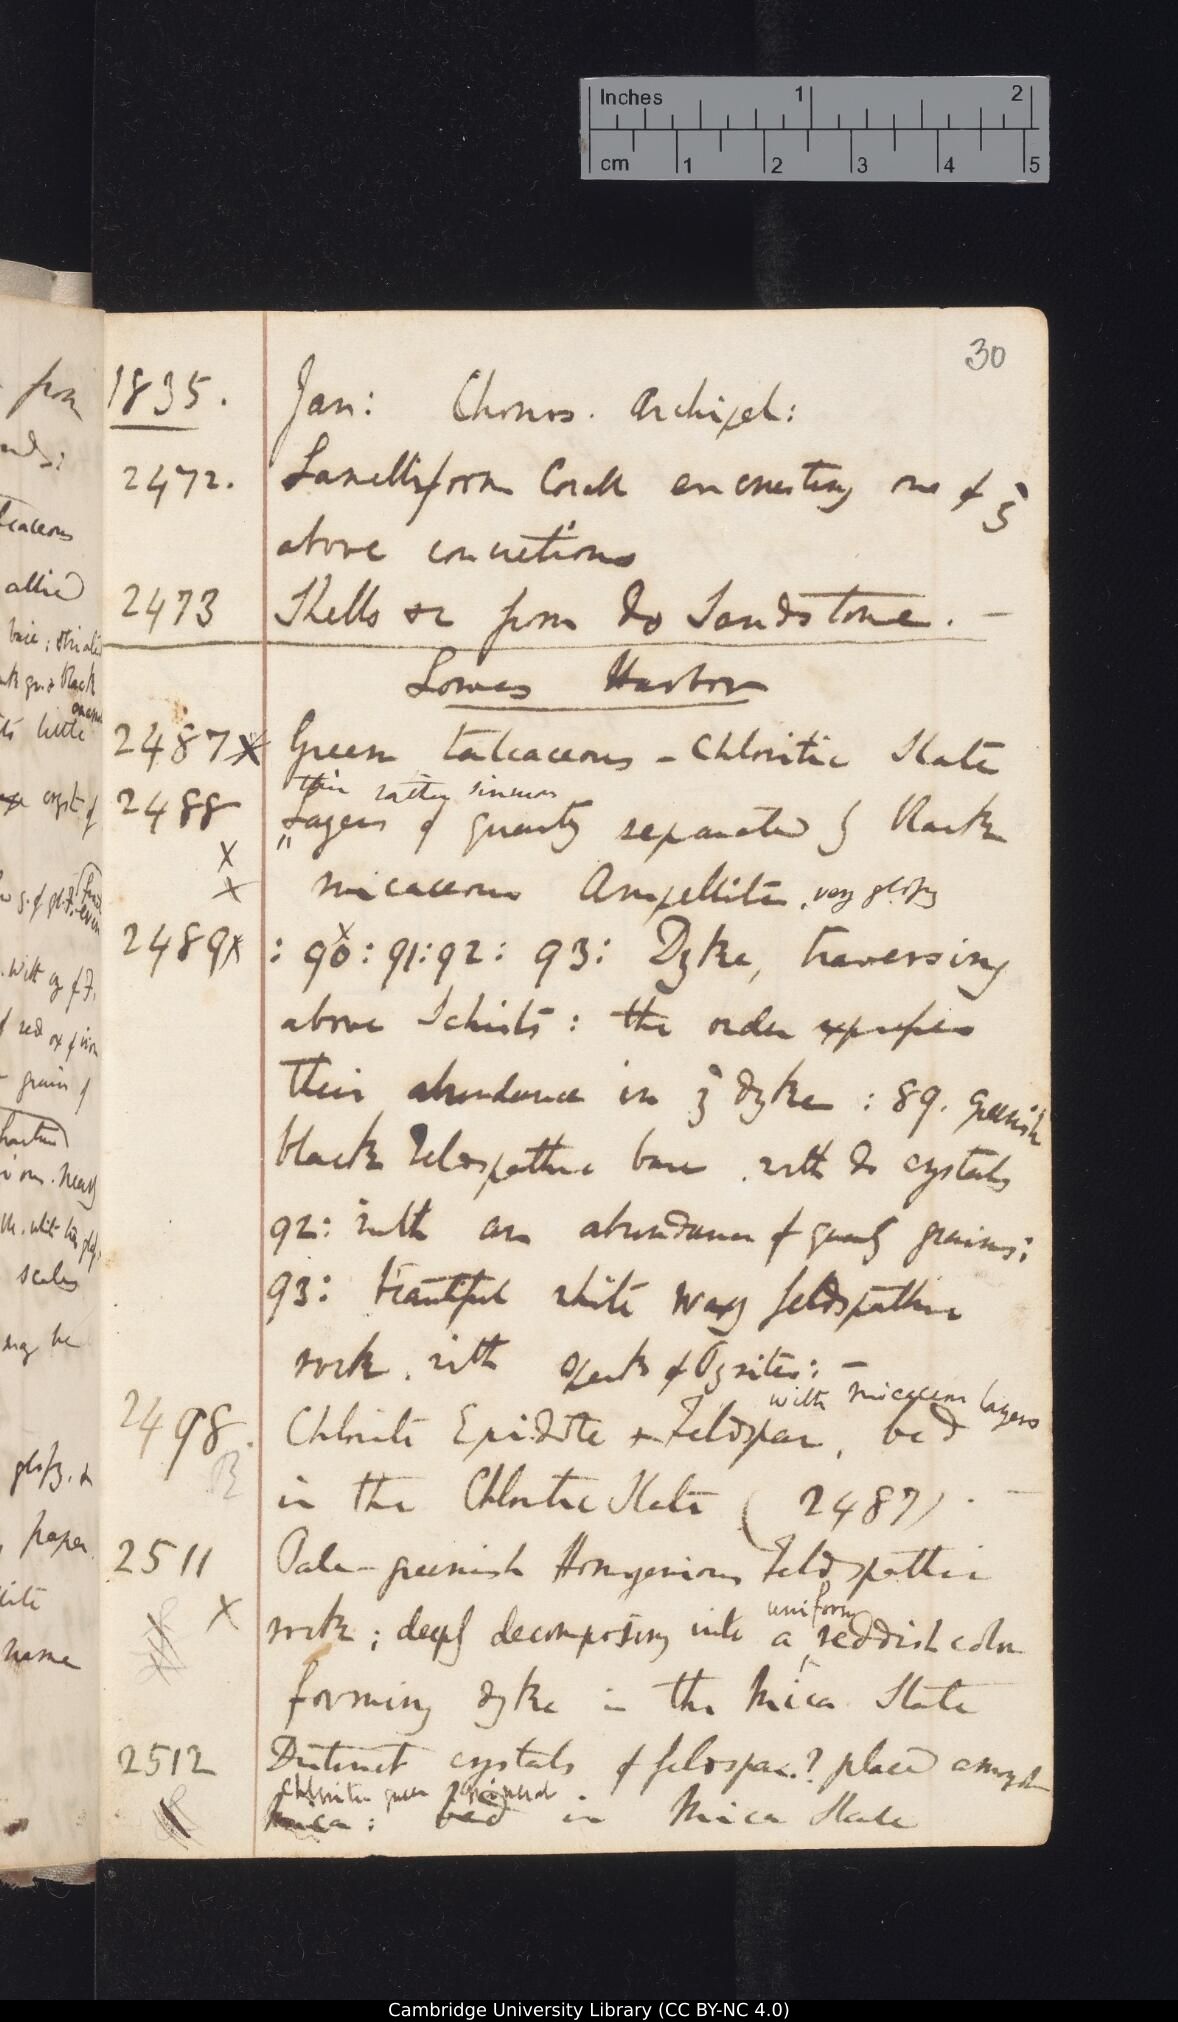 Inches 1 2
cm 1 2 3 4 5
30
1835. Jan: Chonos. Archipel:
2472. Lamelliform Corall encrusting one of ye
above concretions
2473 Shells &c from Do Sandstone. —
Lowes Harbor
2487 X Green talcaceous - Chloritic Slate
thin rather sinuous
2488 Layers of quartz separated by Black
X
X micaceous Ampellite, very glossy
x
2489x : 90: 91: 92: 93: Dyke, traversing
above Schists: the order expresses
their abundance in ye dyke: 89. Greenish
black Feldspathic base. with do crystals
92: with an abundance of quartz grains:
93: beautiful white waxy feldspathic
rock. with specks of Pyrites: —
with micaceous layers
2498. Chlorite Epidote & Feldspar, bed
in the Chloritic Slate (2487). —
2511 Pale-greenish Homogenious Feldspathic
uniform
X rock; deeply decomposing into a reddish color
forming dyke in the Mica Slate
2512 Distinct crystals of feldspar? placed amongst
chloritic green mineral
Mica: bed in Mica Slate
from
talcaceous
allied
base; striated
black
little
cryst of
with
red ox of iron
grain of
scales
may be
glossy. &
paper.
name
Cambridge University Library (CC BY-NC 4.0)